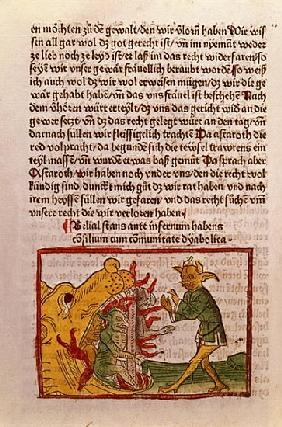 en möchten zů dē gewalt/den wir vlorn haben Wie wis
sen all gar wol dz got gerecht ist/vñ im nyemāt weder
ze lieb noch ze leyd ist er laß in das recht widerfaren so
seyen wir vnser gewär fräuellich beraubt worden So weiß
ich auch wol dz wir erweisen mügen/dz wir die ge
wär gehabt haben/vñ das vns ist beschehen Nach
dem wurt erteylt/dz vns das gericht wid in die
gewer setzt/vñ dz das recht gelegt wurt an den tag/vñ
darnach süllen wir fleissigklich trachten Da astaroth die
red volpracht/da begunde sich die teüfel trawrens ein
teyl massen/vñ wurden was baß gemüt Da sprach aber
Astaroth/wir haben noch vnder vns/den die recht wol
kündig sind/dunckt mich gůt/dz wir rat haben/vnd nach
irem heyssen süllen wir gefaren/vnd das recht süchē vm̄
vnsere recht die wir verloren haben
Belial stans ante infernum habens
cōsilium cum cōmunitate dyabolica